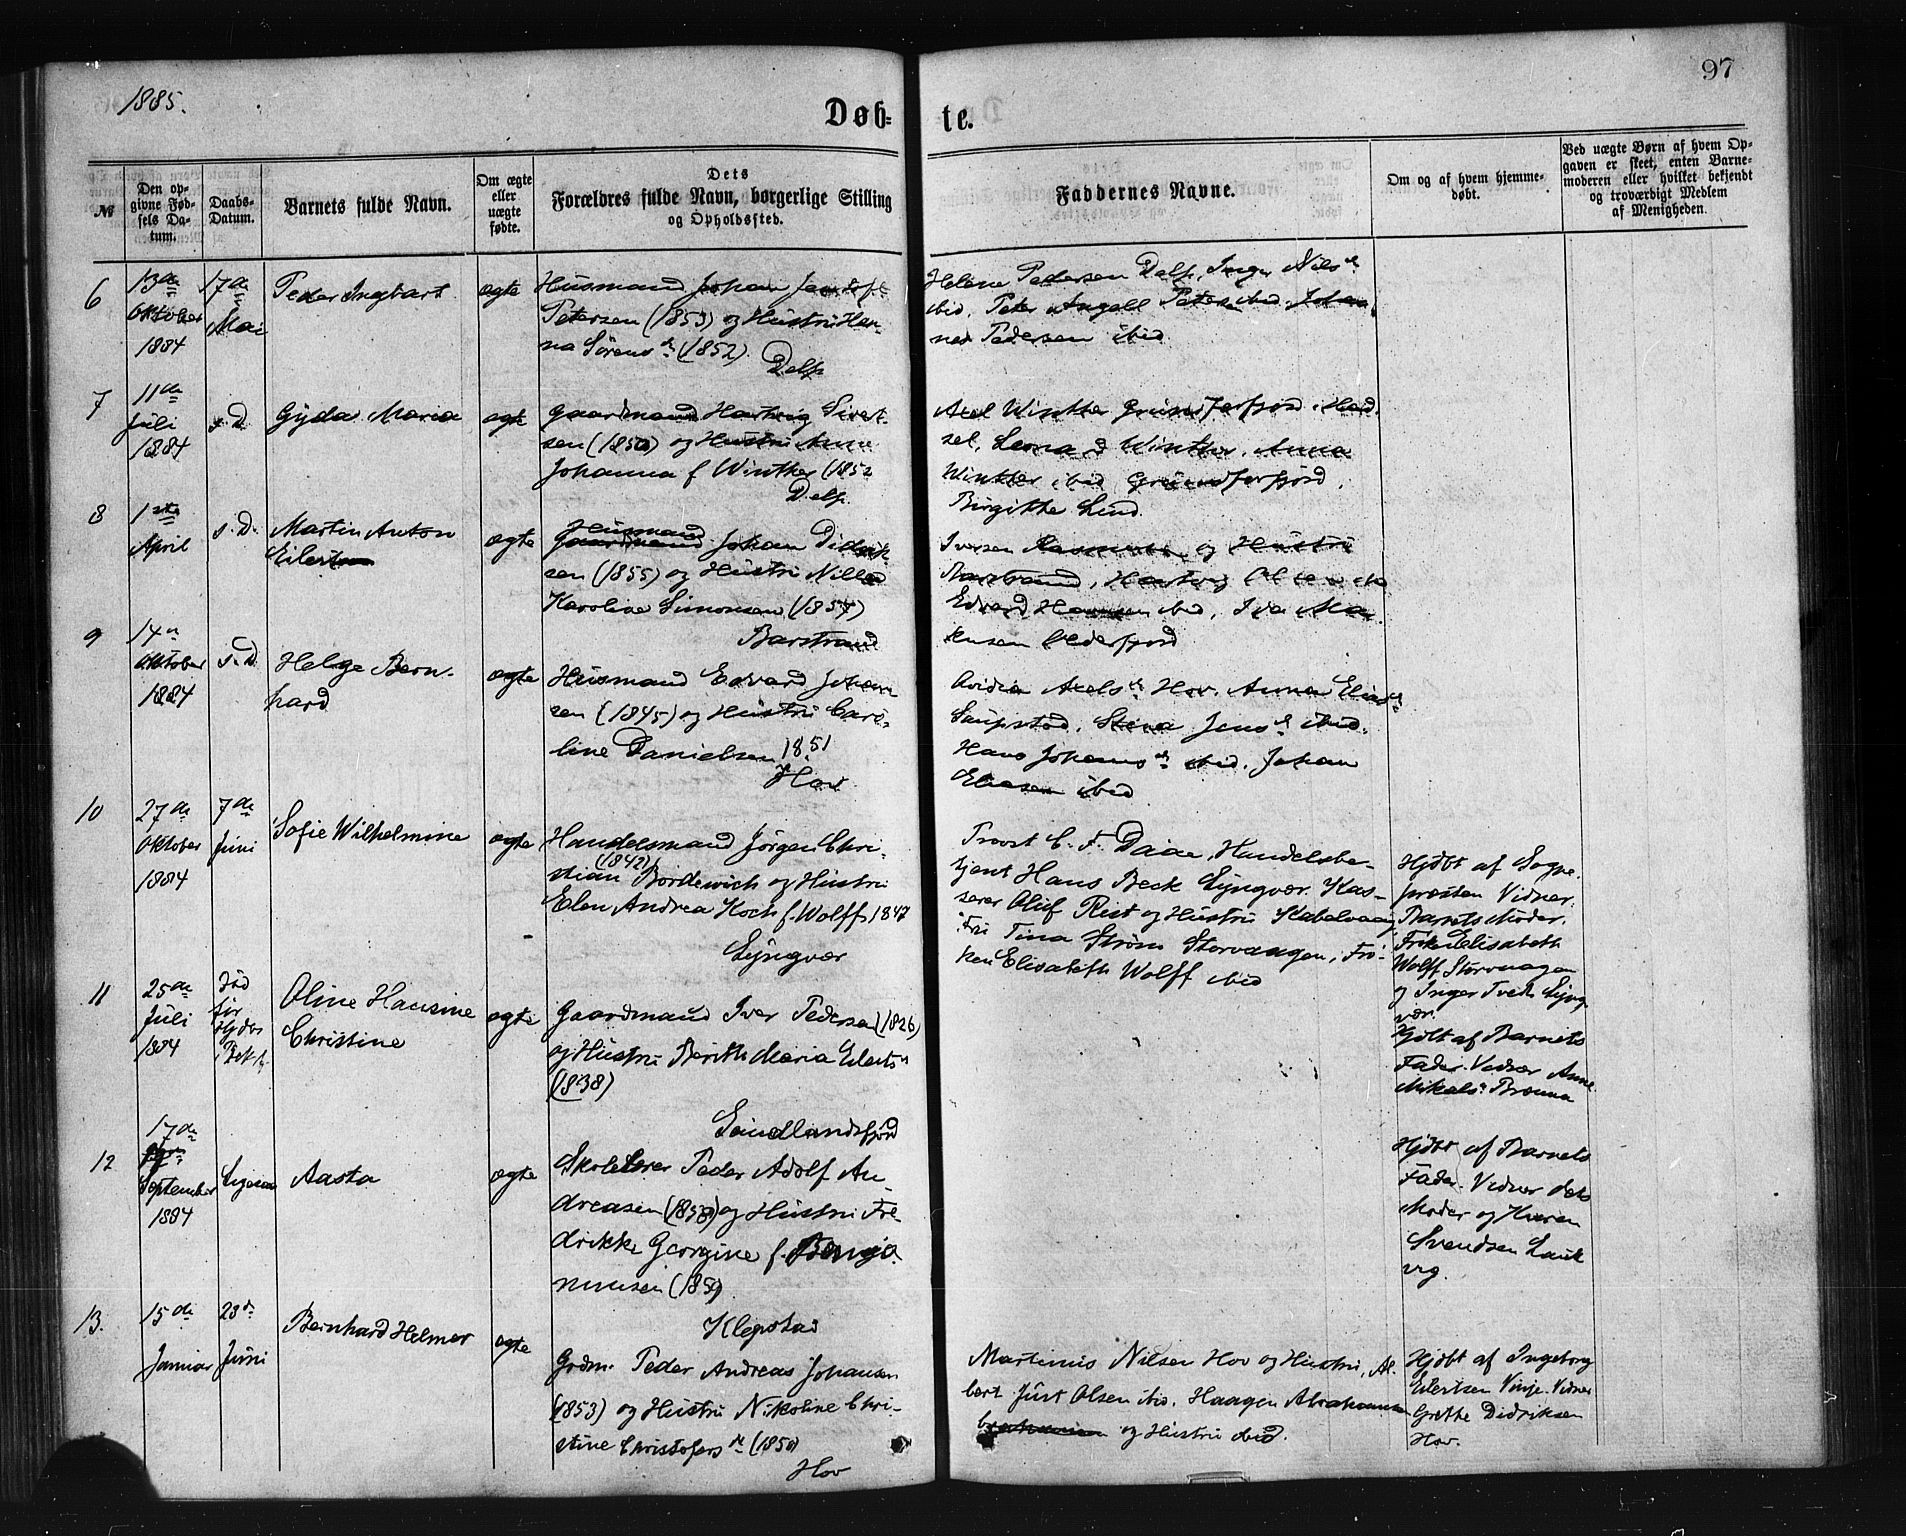 1885.
97
Døb-
te.
№
Den op-
givne Fød-
sels Da-
tum.
Daabs-
Datum.
Barnets fulde Navn.
Om ægte
eller
uægte
fødte.
Dets
Forældres fulde Navn, borgerlige Stilling
og Opholdssted.
Faddernes Navne.
Om og af hvem hjemme-
døbt.
Ved uægte Børn af hvem Op-
gaven er skeet, enten Barne-
moderen eller hvilket bekjendt
og troværdigt Medlem
af Menigheden.
6
13de
Oktober
1884
17de
Mai
Peder Ingbart
ægte
Husmand Johan
Petersen (1853) og Hustru Han-
na Sørensd (1852)
Delp
Helene Pedersen Delp, Inger Nilsd
ibid, Peter Angell Peters ibid. Johan
nes Pedersen ibid
7
11de
Juli
1884
s.D.
Gyda Maria
ægte
Gaardmand Hartvig Sivert-
sen (1850) og Hustru Anne
Johanna f Winther (1852
Delp.
Axel Winther Grundforfjord i Had-
sel, Leonard Winther, Anna
Winther ibid Grundforfjord,
Birgitte Lund.
8
1ste
April
s.D.
Martin Anton
Eilert
ægte
Husmand
Gaardmand Johan Didrik
sen (1855) og Hustru Nille
Karoline Simonsen (1854)
Barstrand
Iversen Rasmussen og Hustru
Barstrand, Hartvig
Edvard Hansen ibid, Ida Ma
Olderfjord
9
14de
Oktober
1884
s.D.
Helge Bern-
hard
ægte
Husmand Edvard Johan
sen (1845) og Hustru Caro-
line Danielsen 1851
Hov
Ovidia Axelsd Hov. Anna Eliasd
Saupstad, Stina Jensd ibid.
Hans Johansd ibid. Johan
Eliasen ibid
10
27de
Oktober
1884
7de
Juni
Sofie Wilhelmine
ægte
Handelsmand Jørgen Chri-
stian (1842) Bordewich og Hustru
Elen Andrea Koch f. Wolff 1847
Lyngvær
Provst C. F. Daae, Handelsbe-
tjent Hans Beck Lyngvær. Kas-
serer Oluf Rist og Hustru Kabelvaag,
Fru Tina Strøm Storvaagen, Frø-
ken Elisabeth Wolff ibid
Hjdbt af Sogne-
præsten Vidner:
Barnets Moder,
Frøken Elisabeth
Wolff Storvaagen
og Inger Tveds Lyng
vær.
11
25de
Juli
1884
død
før
Hjdbs
Bekr.
Oline Hansine
Christine
ægte
Gaardmand Iver Pedersen (1826)
og Hustru Berith Maria Eilertsd
(1838)
Sundlandsfjord
Hjdbt af Barnets
Fader. Vidner Anne
Mikalsd Brenna
12
17de
September
1884
Ligesaa
Aasta
ægte
Skolelærer Peder Adolf An-
dreasen (1858) og Hustru Fre
drikke Georgine f. Benja-
minsen (1859)
Klepstad
Hjdbt af Barnets
Fader. Vidner dets
Moder og Karen
Svendsen Lauk
vig.
13.
15de
Januar
28de
Juni
Bernhard Helmer
ægte
Grdm. Peder Andreas Johansen
(1853) og Hustru Nikoline Chri-
stine Christofersd (1850)
Hov
Martinus Nilsen Hov og Hustru, Al-
bert Just Olsen ibid, Haagen Abrahamsen
og Hustru ibid.
Hjdbt af Ingeborg
Eilertsen Vinje. Vidner
Grethe Didriksen
Hov.